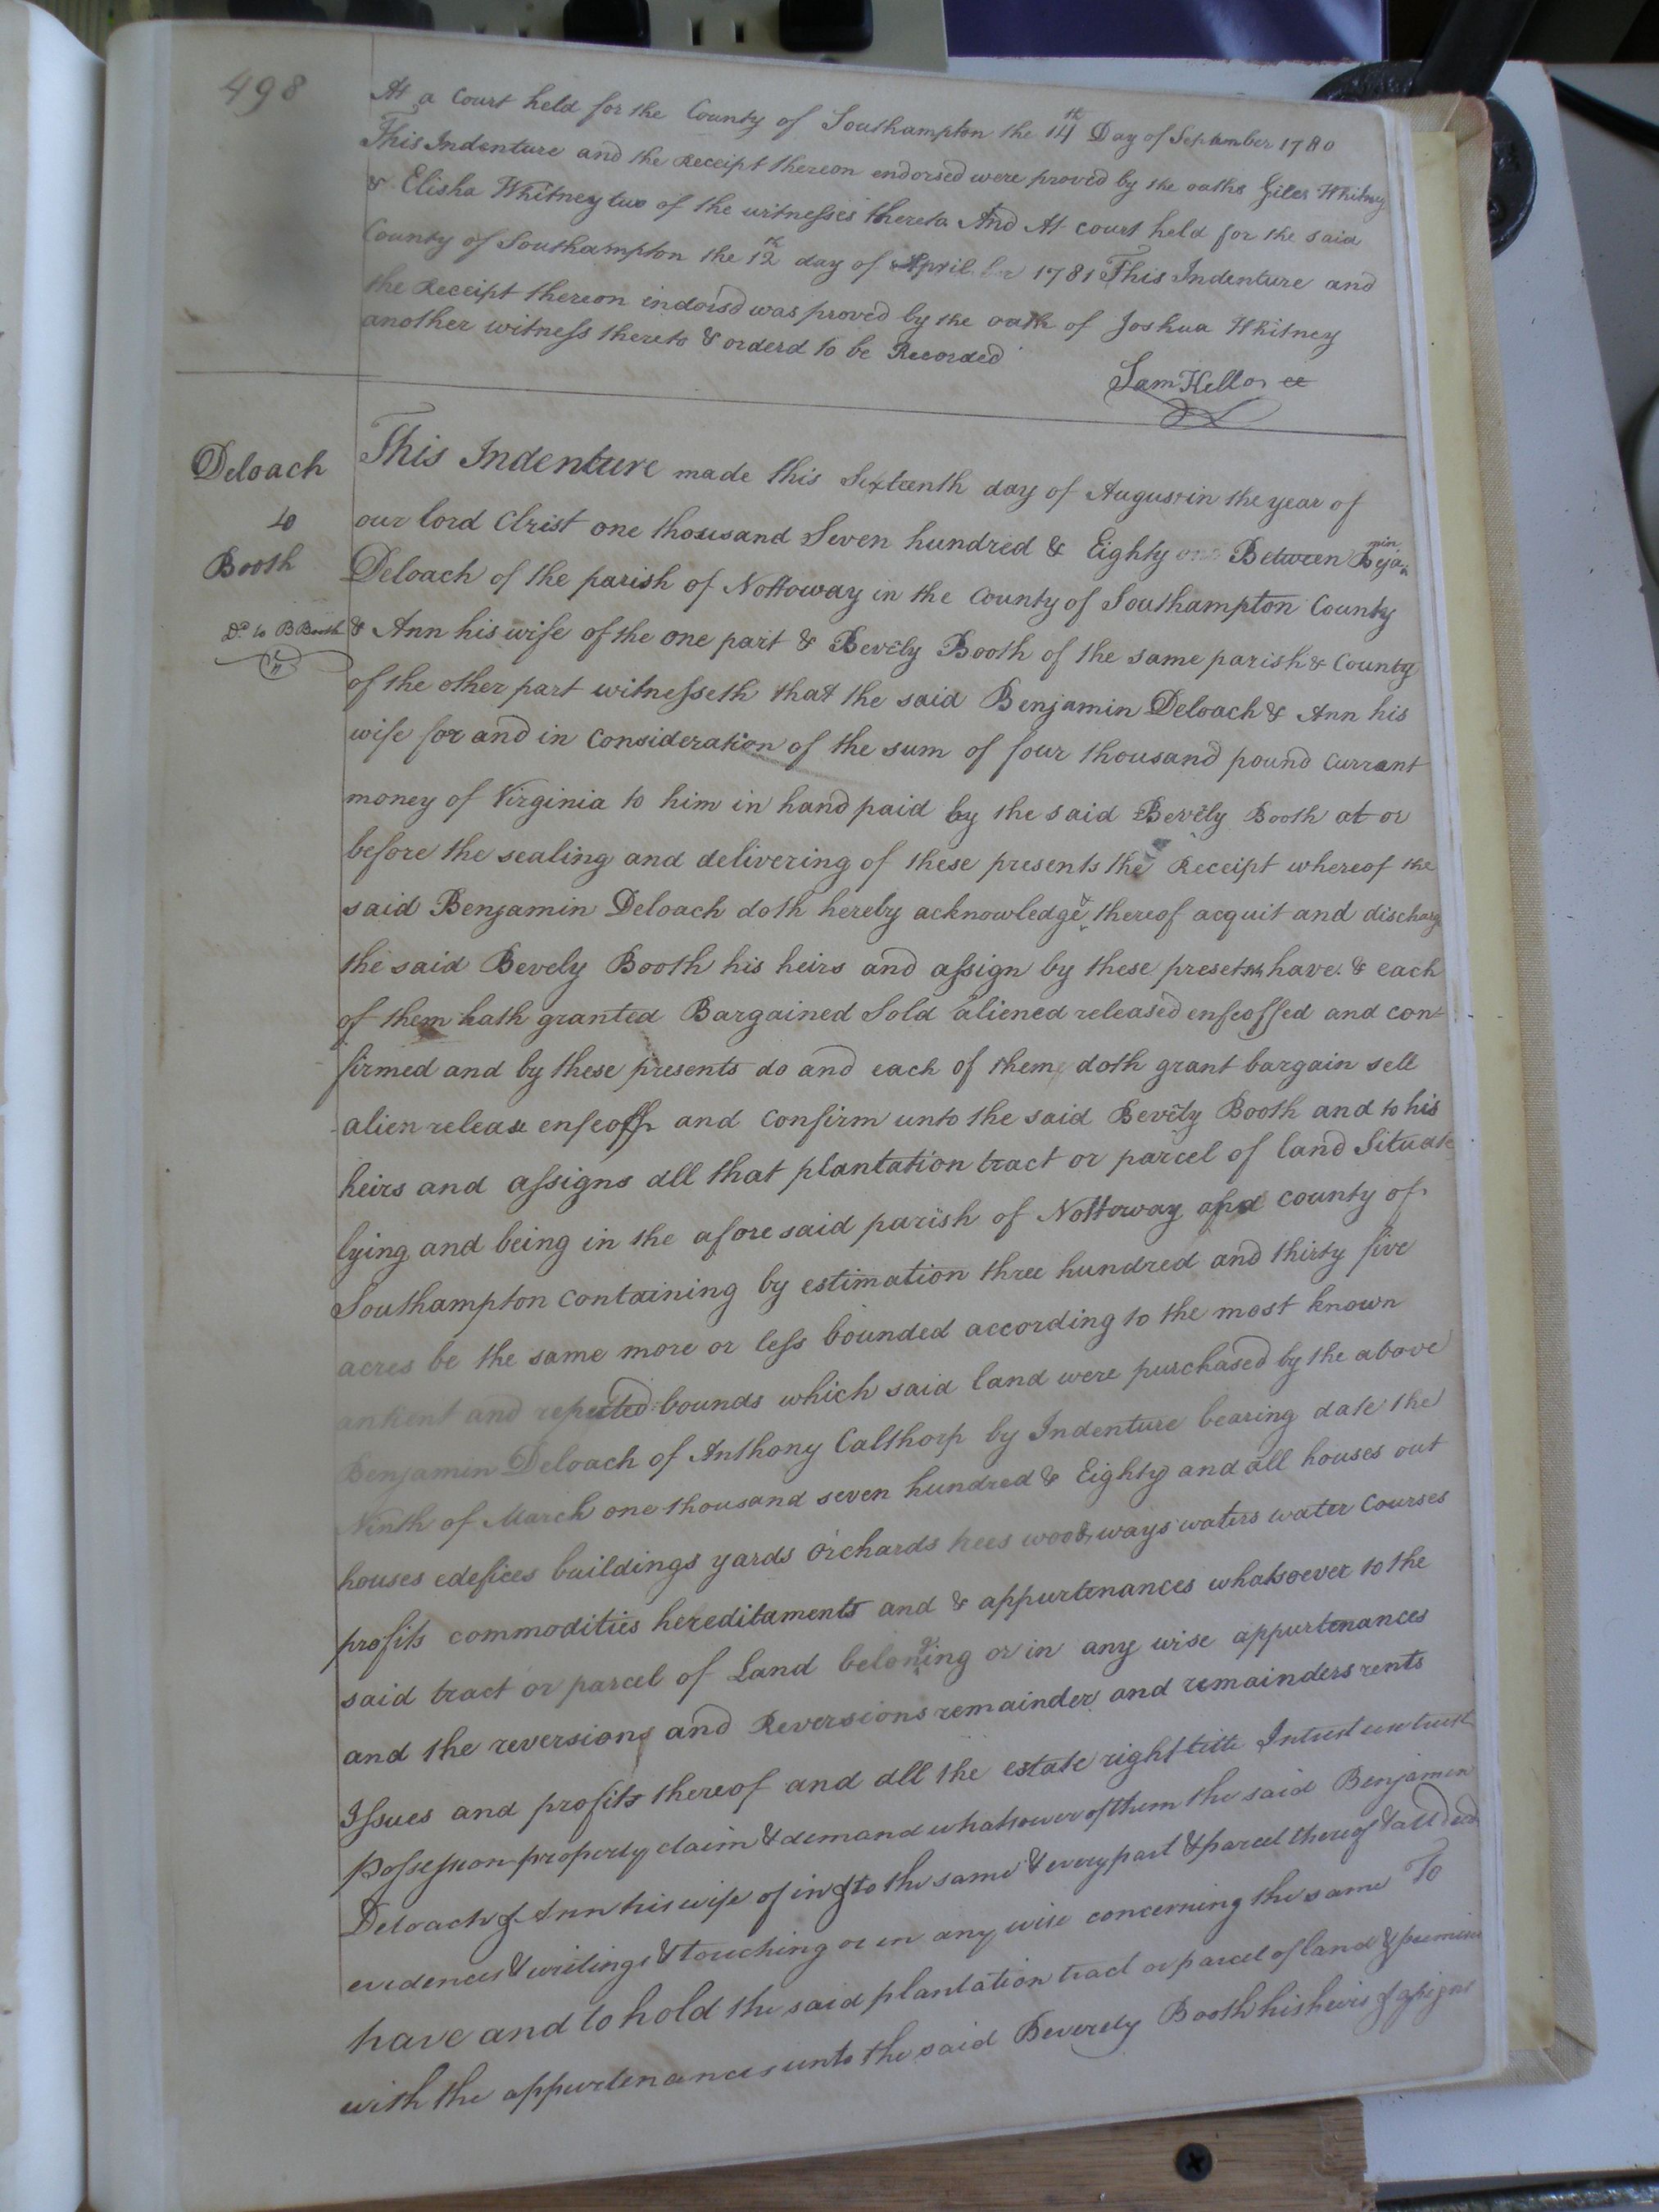 498
At a Court held for the County of Southampton the 14th Day of September 1780
This Indenture and the Receipt thereon endorsed were proved by the oaths Giles Whitney
& Elisha Whitney two of the witnesses thereto And At court held for the said
County of Southampton the 12th day of April 1781 This Indenture and
the Receipt thereon indorsd was proved by the oath of Joshua Whitney
another witness thereto & orderd to be Recorded
Sam Kello cc
Deloach
to
Booth
Dd to B Booth
This Indenture made this Sixteenth day of August in the year of
our lord Christ one thousand Seven hundred & Eighty one Between Bejamin
Deloach of the parish of Nottoway in the County of Southampton County
& Ann his wife of the one part & Bevely Booth of the same parish & County
of the other part witnesseth that the said Benjamin Deloach & Ann his
wife for and in Consideration of the sum of four thousand pound Currant
money of Virginia to him in hand paid by the said Bevely Booth at or
before the sealing and delivering of these presents the Receipt whereof the
said Benjamin Deloach doth hereby acknowledge thereof acquit and discharg
the said Bevely Booth his heirs and assign by these have & each
of them hath granted Bargained Sold aliened released enfeoffed and con-
firmed and by these presents do and each of them doth grant bargain sell
alien release enfeoff and Confirm unto the said Bevely Booth and to his
heirs and assigns all that plantation tract or parcel of land Situate
lying and being in the afore said parish of Nottoway and county of
Southampton Containing by estimation three hundred and thirty five
acres be the same more or less bounded according to the most known
antient and reputed bounds which said land were purchased by the above
Benjamin Deloach of Anthony Calthorp by Indenture bearing date the
Ninth of March one thousand seven hundred & Eighty and all houses out
houses edefices buildings yards orchards trees woods ways waters water Courses
profits commodities hereditaments and & appurtenances whatsoever to the
said tract or parcel of Land belonging or in any wise appurtenances
and the reversions and Reversions remainder and remainders rents
Issues and profits thereof and all the estate right title Intrest use trust
Possession property claim & demand whatsoever of them the said Benjamin
Deloach & Ann his wife of in & to the same & every part & parcel thereof & all deed
evidences & writings & touching or in any wise concerning the same To
have and to hold the said plantation tract or parcel of land & premises
with the appurtenances unto the said Beverely Booth his heirs & assigns